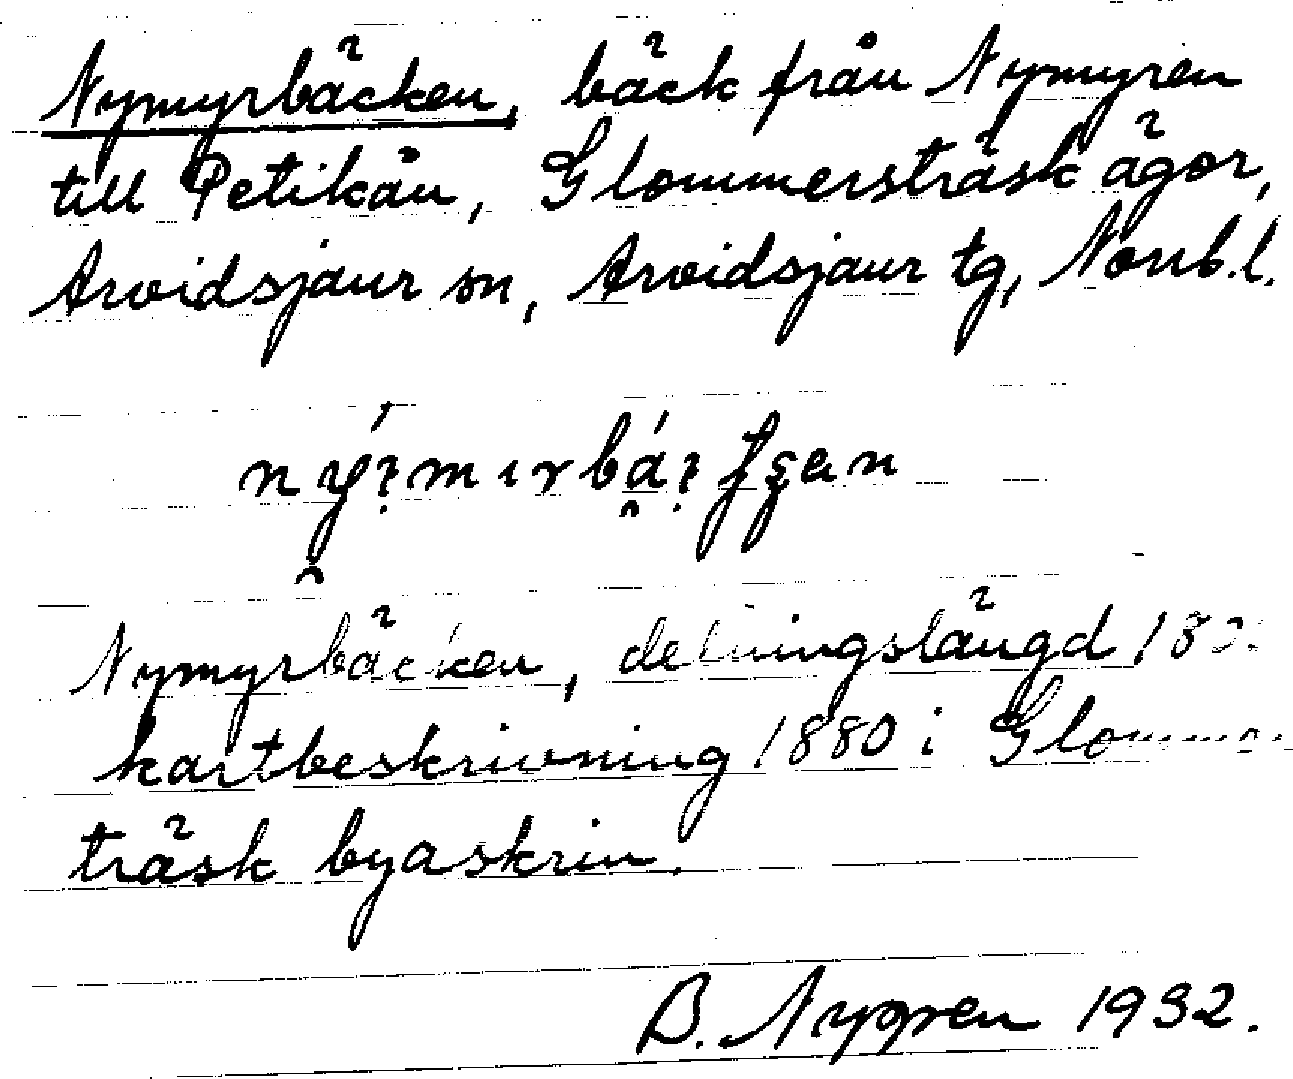 Nymyrbäcken, bäck från Nymyren
till Petikån, Glommersträsk ägor,
Arvidsjaur sn, Arvidsjaur tg, Norrb.l.
Nymyrbäcken, delningslängd
kartbeskrivning 1880 i
träsk byaskrin.
B. Nygren 1932.